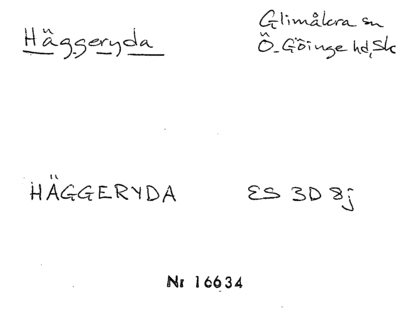 Häggeryda
Glimåkra sn
Ö. Göinge hd, Sk
HÄGGERYDA
ES 3D 8j
Nr 16634